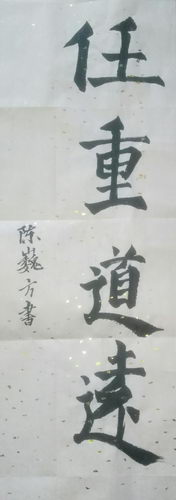 任重道遠
陈巍方書